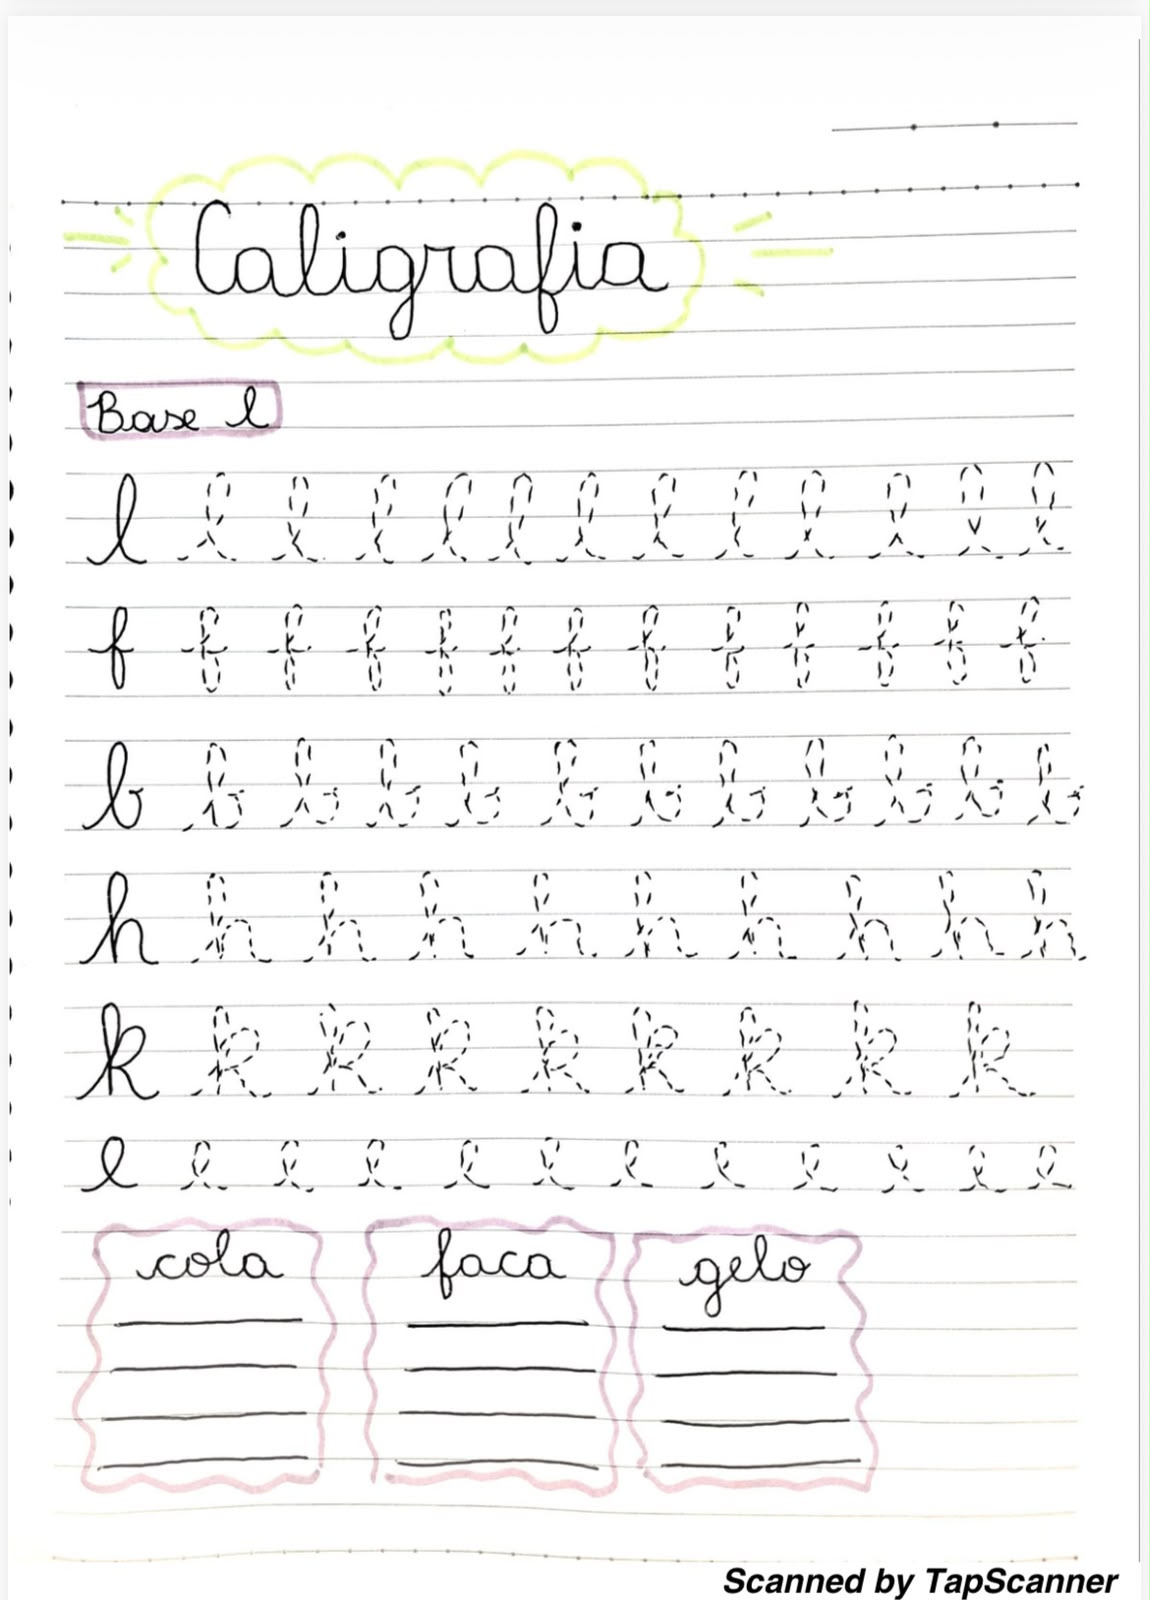 Caligrafia
Base l
l l l l l l l l l l l l l
f f f f f f f f f f f f f
b b b b b b b b b b b b
h h h h h h h h h h
k k k k k k k k k
e e e e e e e e e e e e
cola faca gelo
Scanned by TapScanner